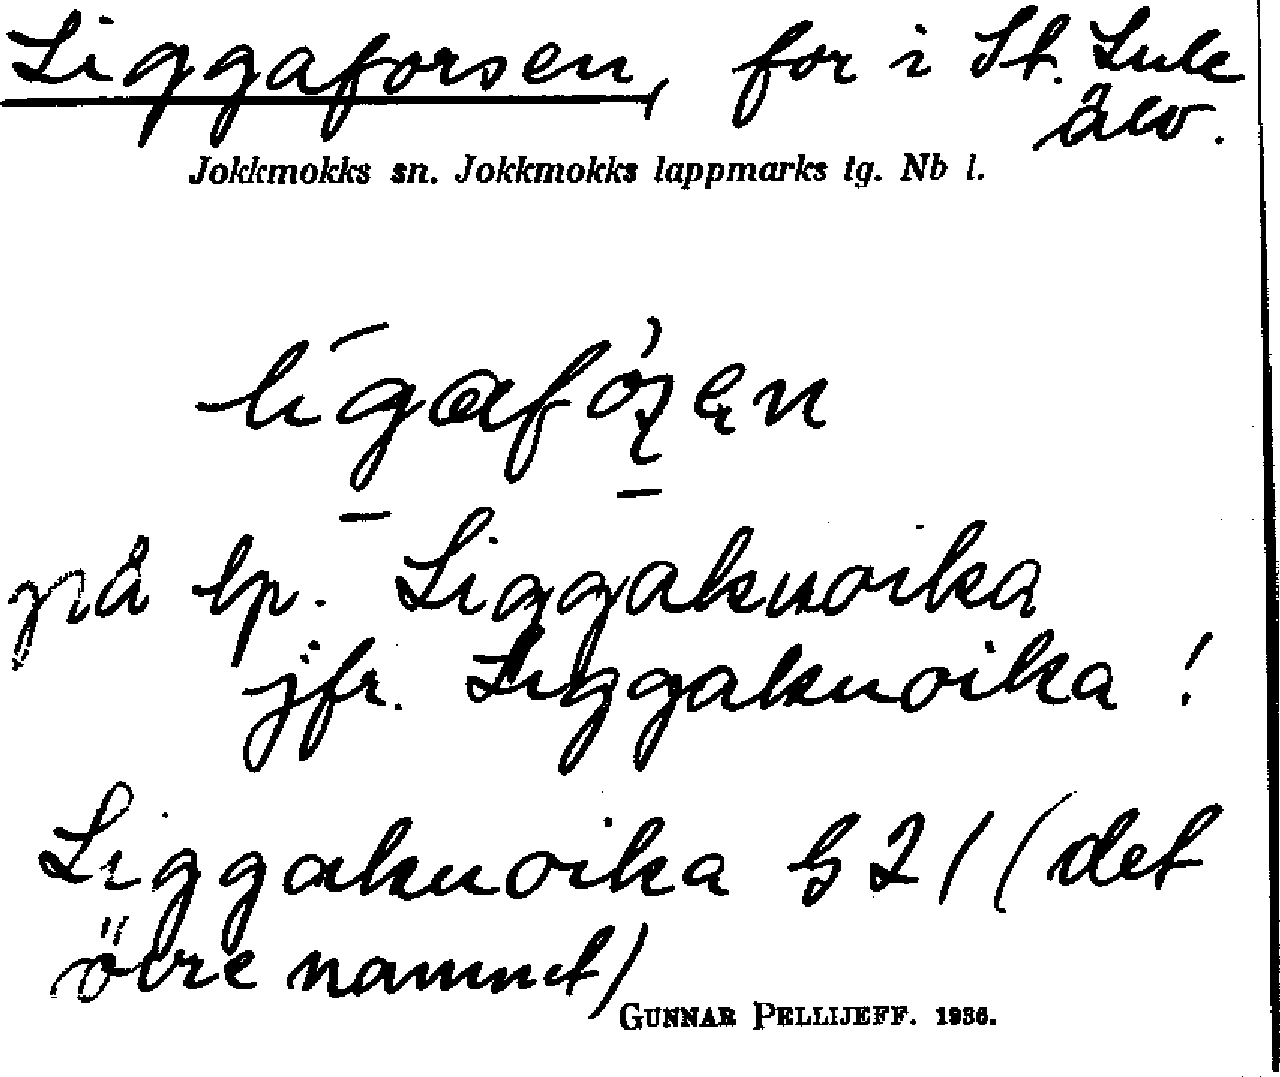 Liggaforsen, for i St. Lule
älv.
Jokkmokks sn. Jokkmokks lappmarks tg. Nb l.
på lp. Liggakuoika
jfr. Liggakuoika!
Liggakuoika § 21 (det
övre namnet)
GUNNAR PELLIJEFF. 1936.